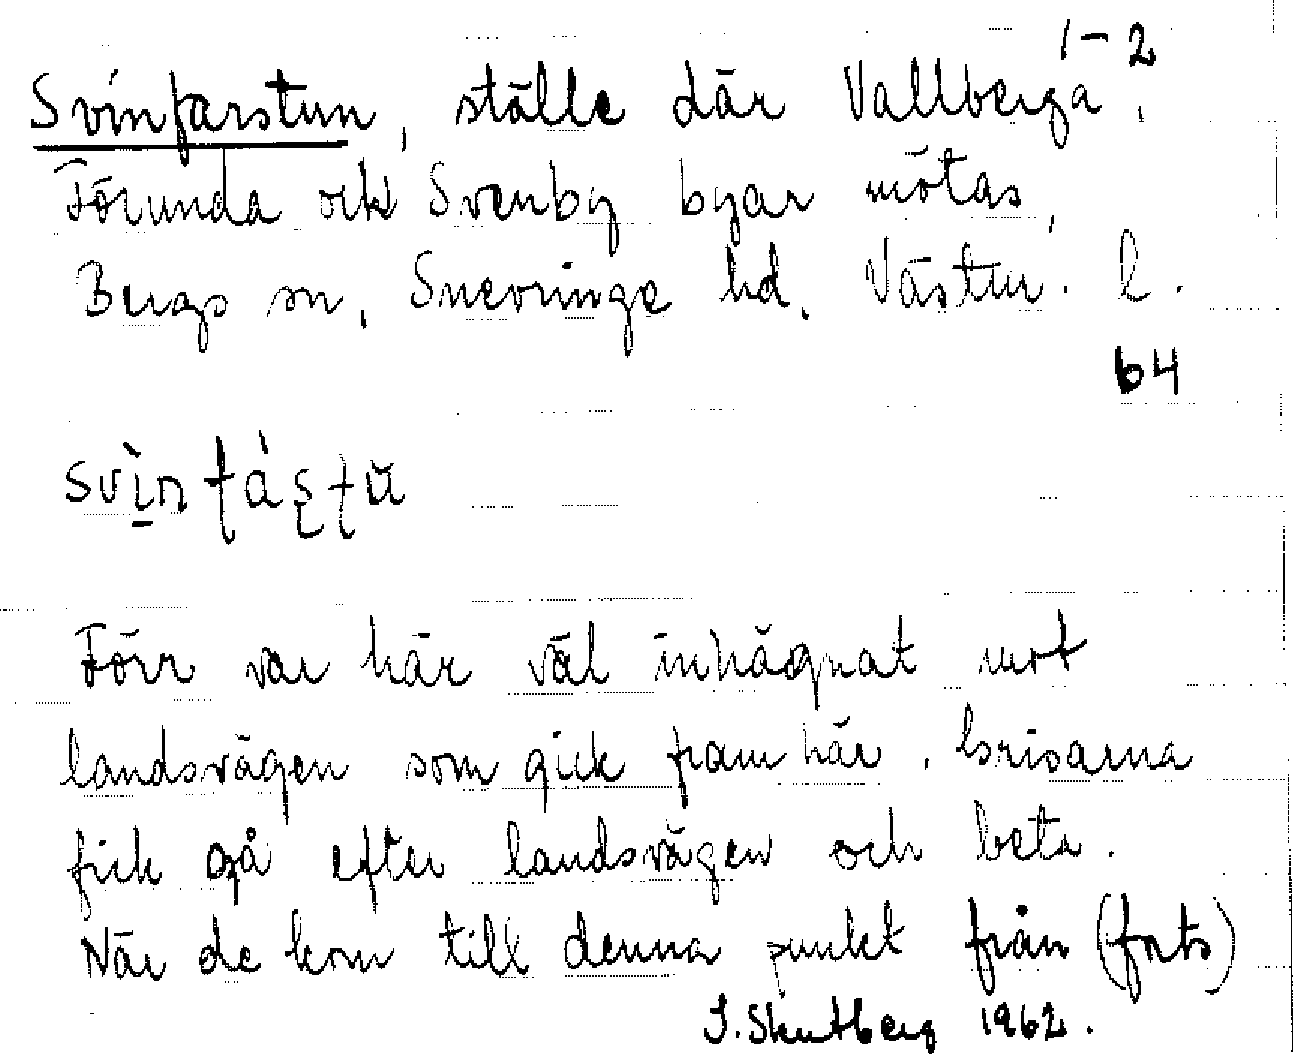 1-2
Svinfarstun, ställe där Vallberga,
Förunda och Svenby byar mötas,
Bergs sn, Snevringe hd, Västm. l.
64
Förr var här väl inhägnat mot
landsvägen som gick fram här. Grisarna
fick gå efter landsvägen och beta.
När de kom till denna punkt från (forts)
S. Skutberg 1962.